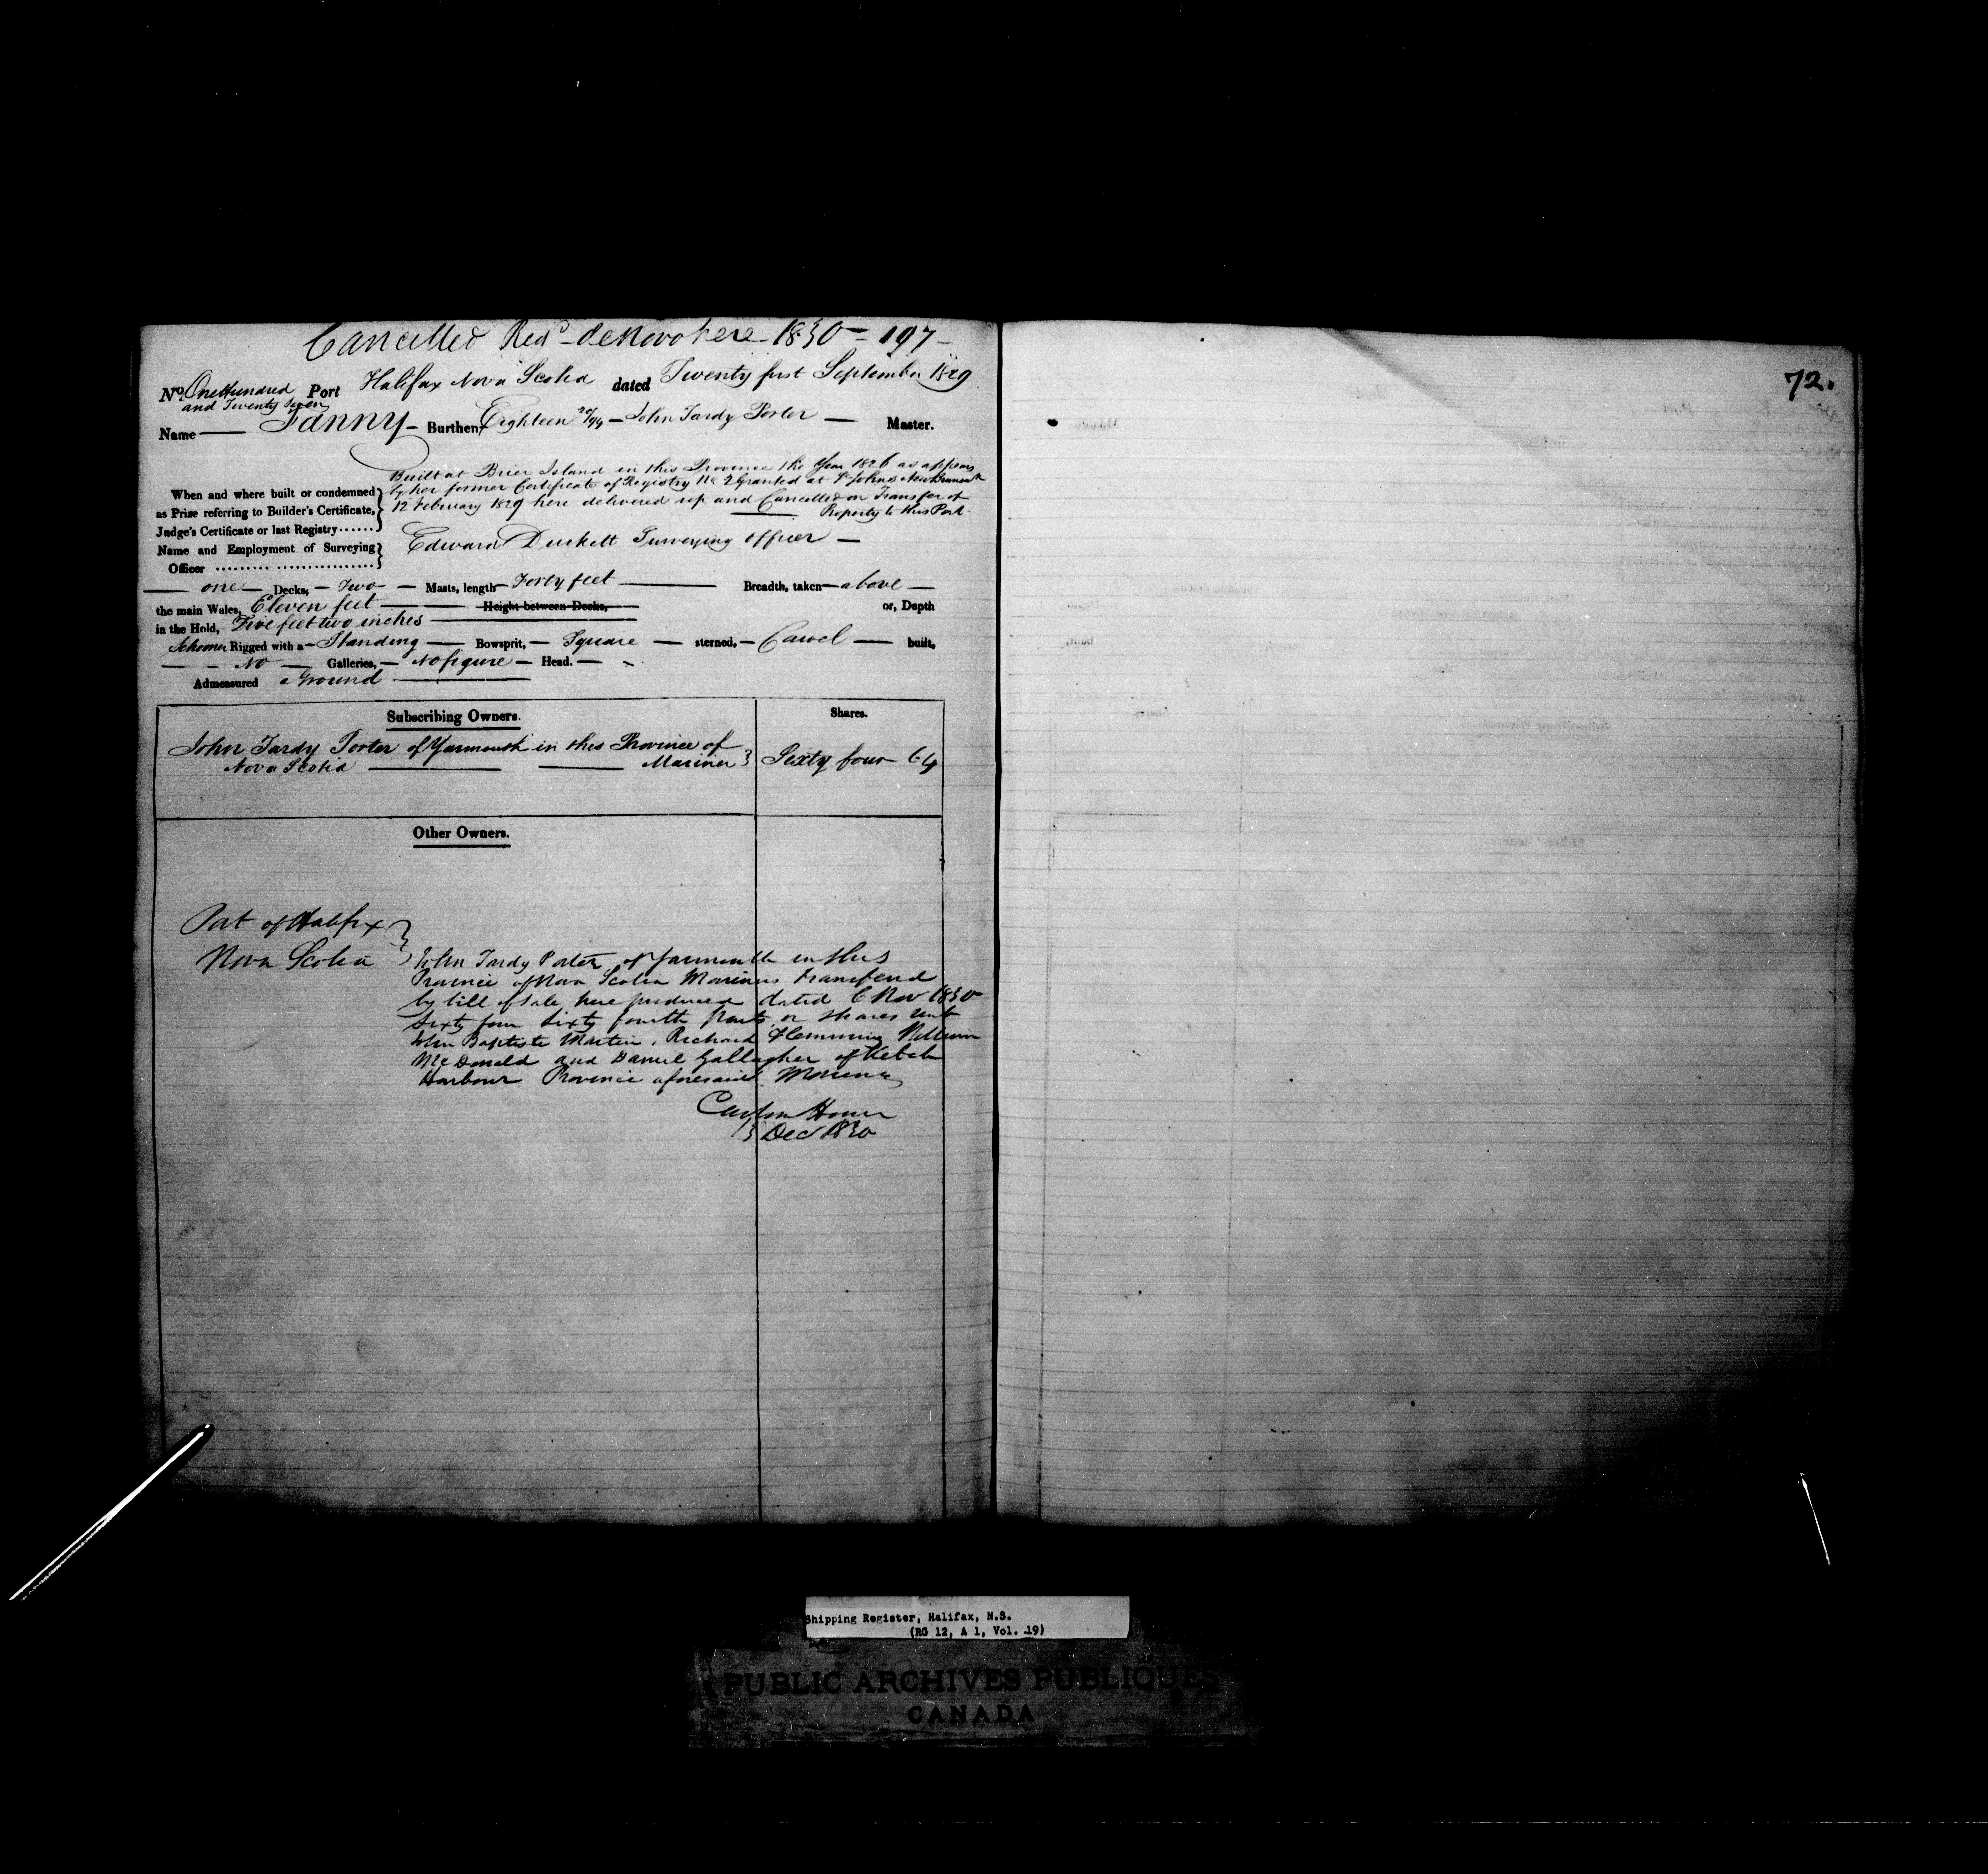 Cancelled Regd de Novo here 1830 - 197 -
72.
No. One Hundred and Twenty Seven Port Halifax Nova Scotia dated Twenty first September 1829
Name Fanny - Burthen Eighteen 20/94 - John Tardy Porter - Master.
Built at Brier Island in this Province the Year 1826 as appears
by her former Certificate of Registry No 2 Granted at St Johns New Brunswick
12 February 1829 here delivered up and Cancelled on Transfer of
Property to this Port -
When and where built or condemned
as Prize referring to Builder's Certificate,
Judge's Certificate or last Registry ......
Name and Employment of Surveying
Officer ......... ................
Edward Duckett Surveying Officer -
one - Decks, - Two - Masts, length - Forty feet - Breadth, taken - above -
the main Wales, Eleven feet - Height between Decks, or, Depth
in the Hold, Five feet two inches
Schooner Rigged with a - Standing - Bowsprit, - Square - sterned, - Carvel - built,
- - No - Galleries, - No figure - Head. -
Admeasured a Ground
Subscribing Owners.
Shares.
John Tardy Porter of Yarmouth in this Province of
Nova Scotia Mariner
Sixty four 64
Other Owners.
Port of Halifax
Nova Scotia
John Tardy Porter of Yarmouth in this
Province of Nova Scotia Mariner transferred
by bill of Sale here produced dated 6 Nov 1830
Sixty four Sixty fourth Parts or Shares unto
John Baptiste Martin, Richard Flemming William
McDonald and Daniel Gallagher of Ketch
Harbour Province aforesaid Mariners
Custom House
13 Dec 1830
Shipping Register, Halifax, N.S.
(RG 12, A 1, Vol. 19)
PUBLIC ARCHIVES PUBLIQUES
CANADA